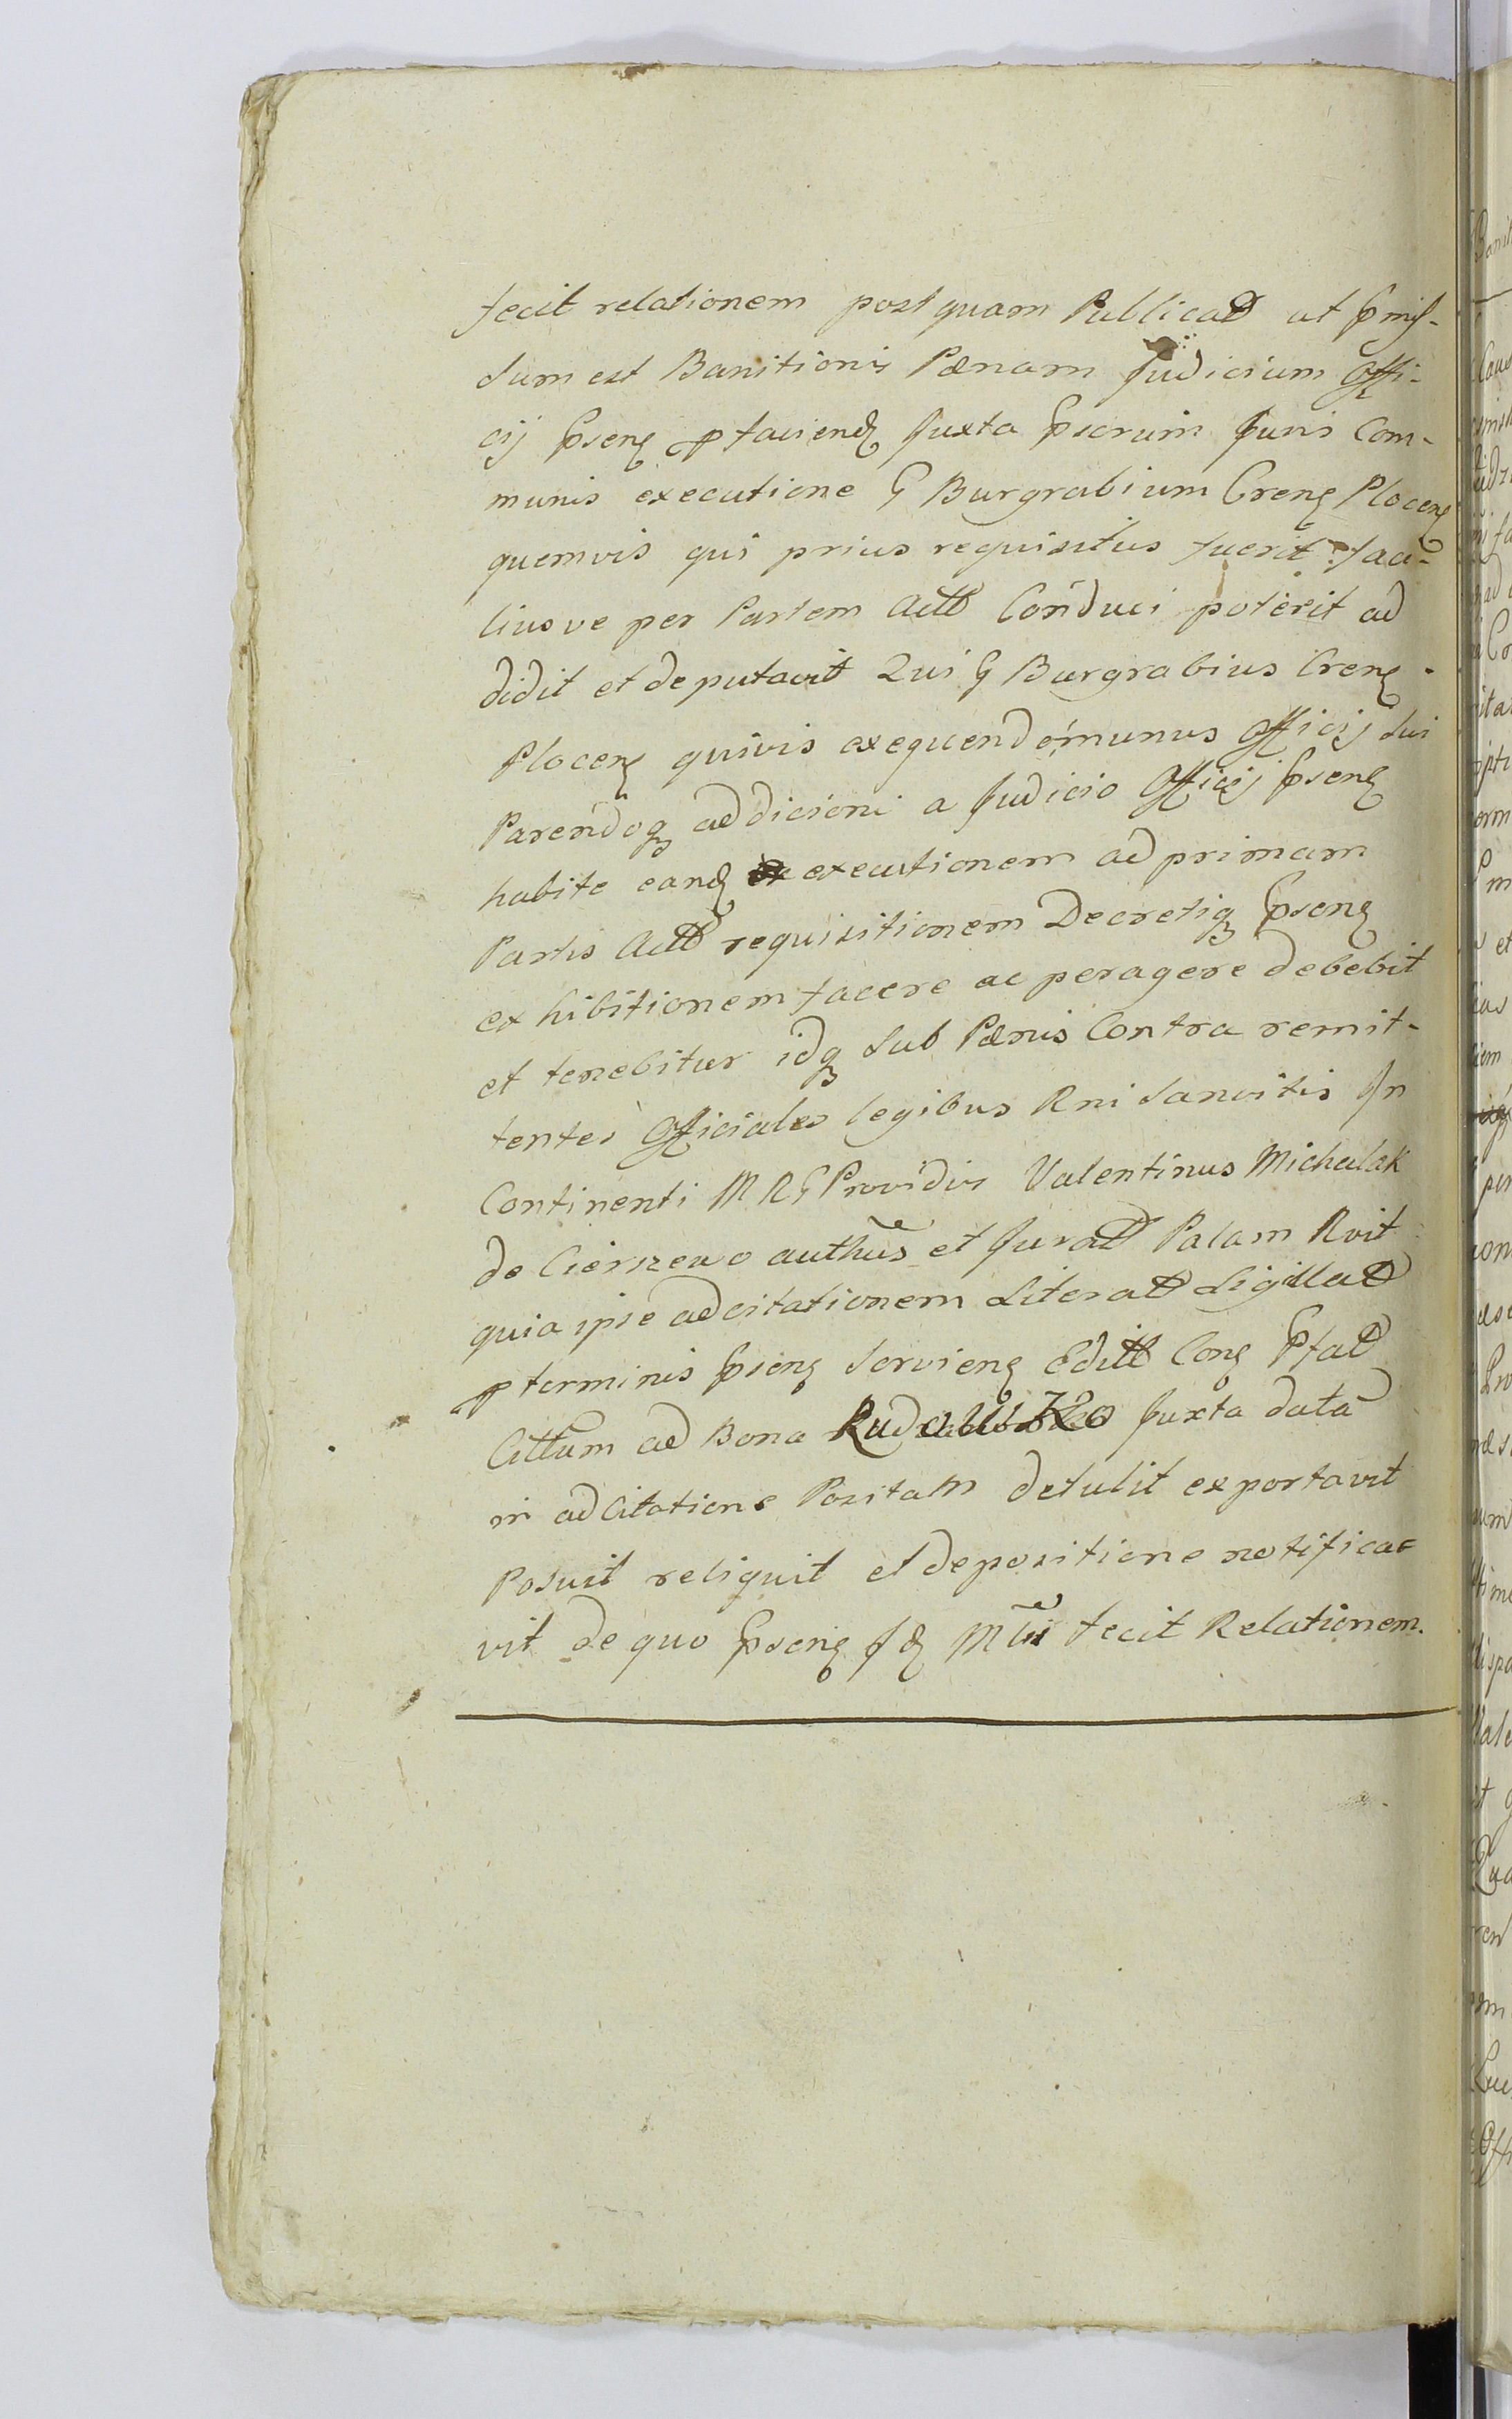 fecit relationem postquam Publicat ut Pmis-
sum est Banitionis Pænam Judicium Offi-
cij Pnsens p faciend Juxta Psorum Juris Com-
munis executione G Burgrabium Crens Plocens
quemvis qui prius requisitus fuerit faci-
liusve per Partem Act Conduci poterit ad
didit et deputavit Qui G Burgrabius Crens
Plocens quivis exequendo munus Officij sui
Parendoq addicioni a Judicio Officij Pnsens
habite eand executionem ad primam
Partis Act requisitionem Decretiq Pnsens
exhibitionem facere ac peragere debebit
et tenebitur idq sub Pænis Contra remit-
tentes Officiales legibus Rni sancitis In
Continenti M R G Providus Valentinus Michalak
de Cierszewo authus et Jurat Palam Rvit
quia ipse adcitationem Literat Sigillat
p terminis Pnsens serviens Edit Cons Pfat
Cittum ad Bona Juxta data
in adcitatione Positam detulit exportavit
Posuit reliquit et depositione notifica-
vit de quo Pnsens Jd Mtri fecit Relationem.